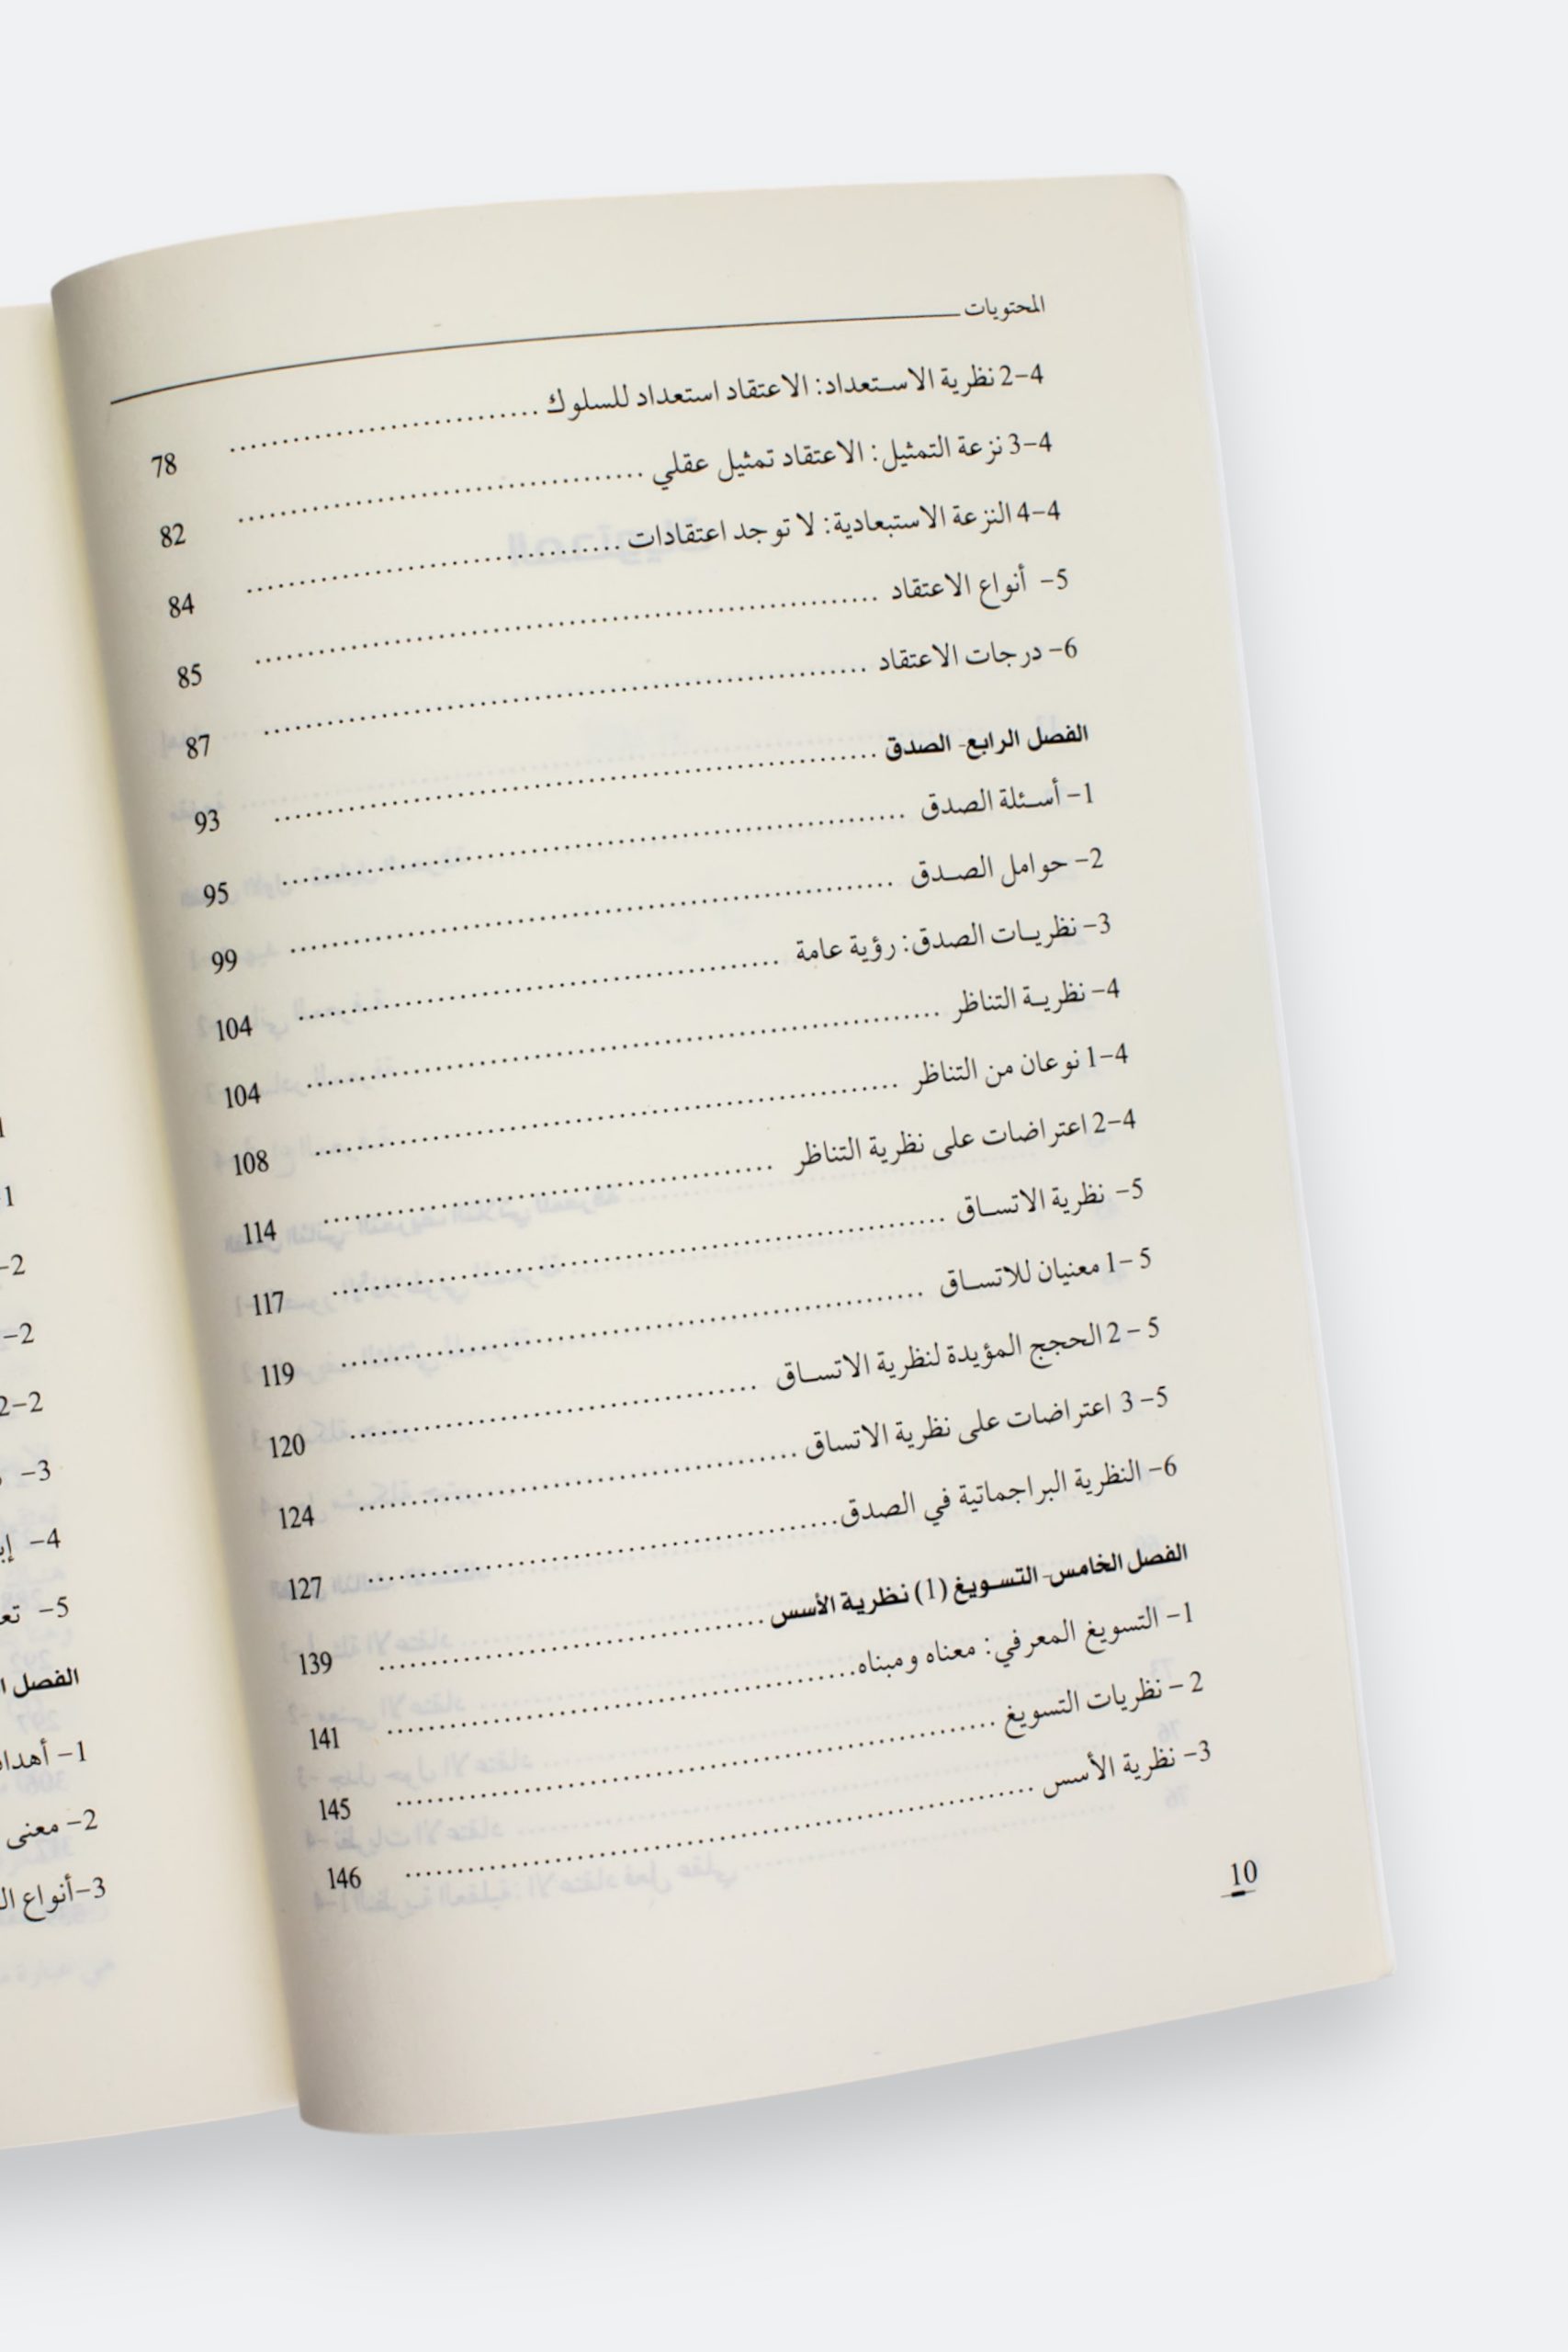 المحتويات
4-2 نظرية الاستعداد: الاعتقاد استعداد للسلوك ........ 78
4-3 نزعة التمثيل: الاعتقاد تمثيل عقلي ........ 82
4-4 النزعة الاستبعادية: لا توجد اعتقادات ........ 84
5- أنواع الاعتقاد ........ 85
6- درجات الاعتقاد ........ 87
الفصل الرابع- الصدق ........ 93
1- أسئلة الصدق ........ 95
2- حوامل الصدق ........ 99
3- نظريات الصدق: رؤية عامة ........ 104
4- نظرية التناظر ........ 104
4-1 نوعان من التناظر ........ 108
4-2 اعتراضات على نظرية التناظر ........ 114
5- نظرية الاتساق ........ 117
5-1 معنيان للاتساق ........ 119
5-2 الحجج المؤيدة لنظرية الاتساق ........ 120
5-3 اعتراضات على نظرية الاتساق ........ 124
6- النظرية البراجماتية في الصدق ........ 127
الفصل الخامس- التسويغ (1) نظرية الأسس ........ 139
1- التسويغ المعرفي: معناه ومبناه ........ 141
2- نظريات التسويغ ........ 145
3- نظرية الأسس ........ 146
10
1
1
2-
2-
2-2
3-
4-
5-
الفصل
1-
2- معنى
3- أنواع